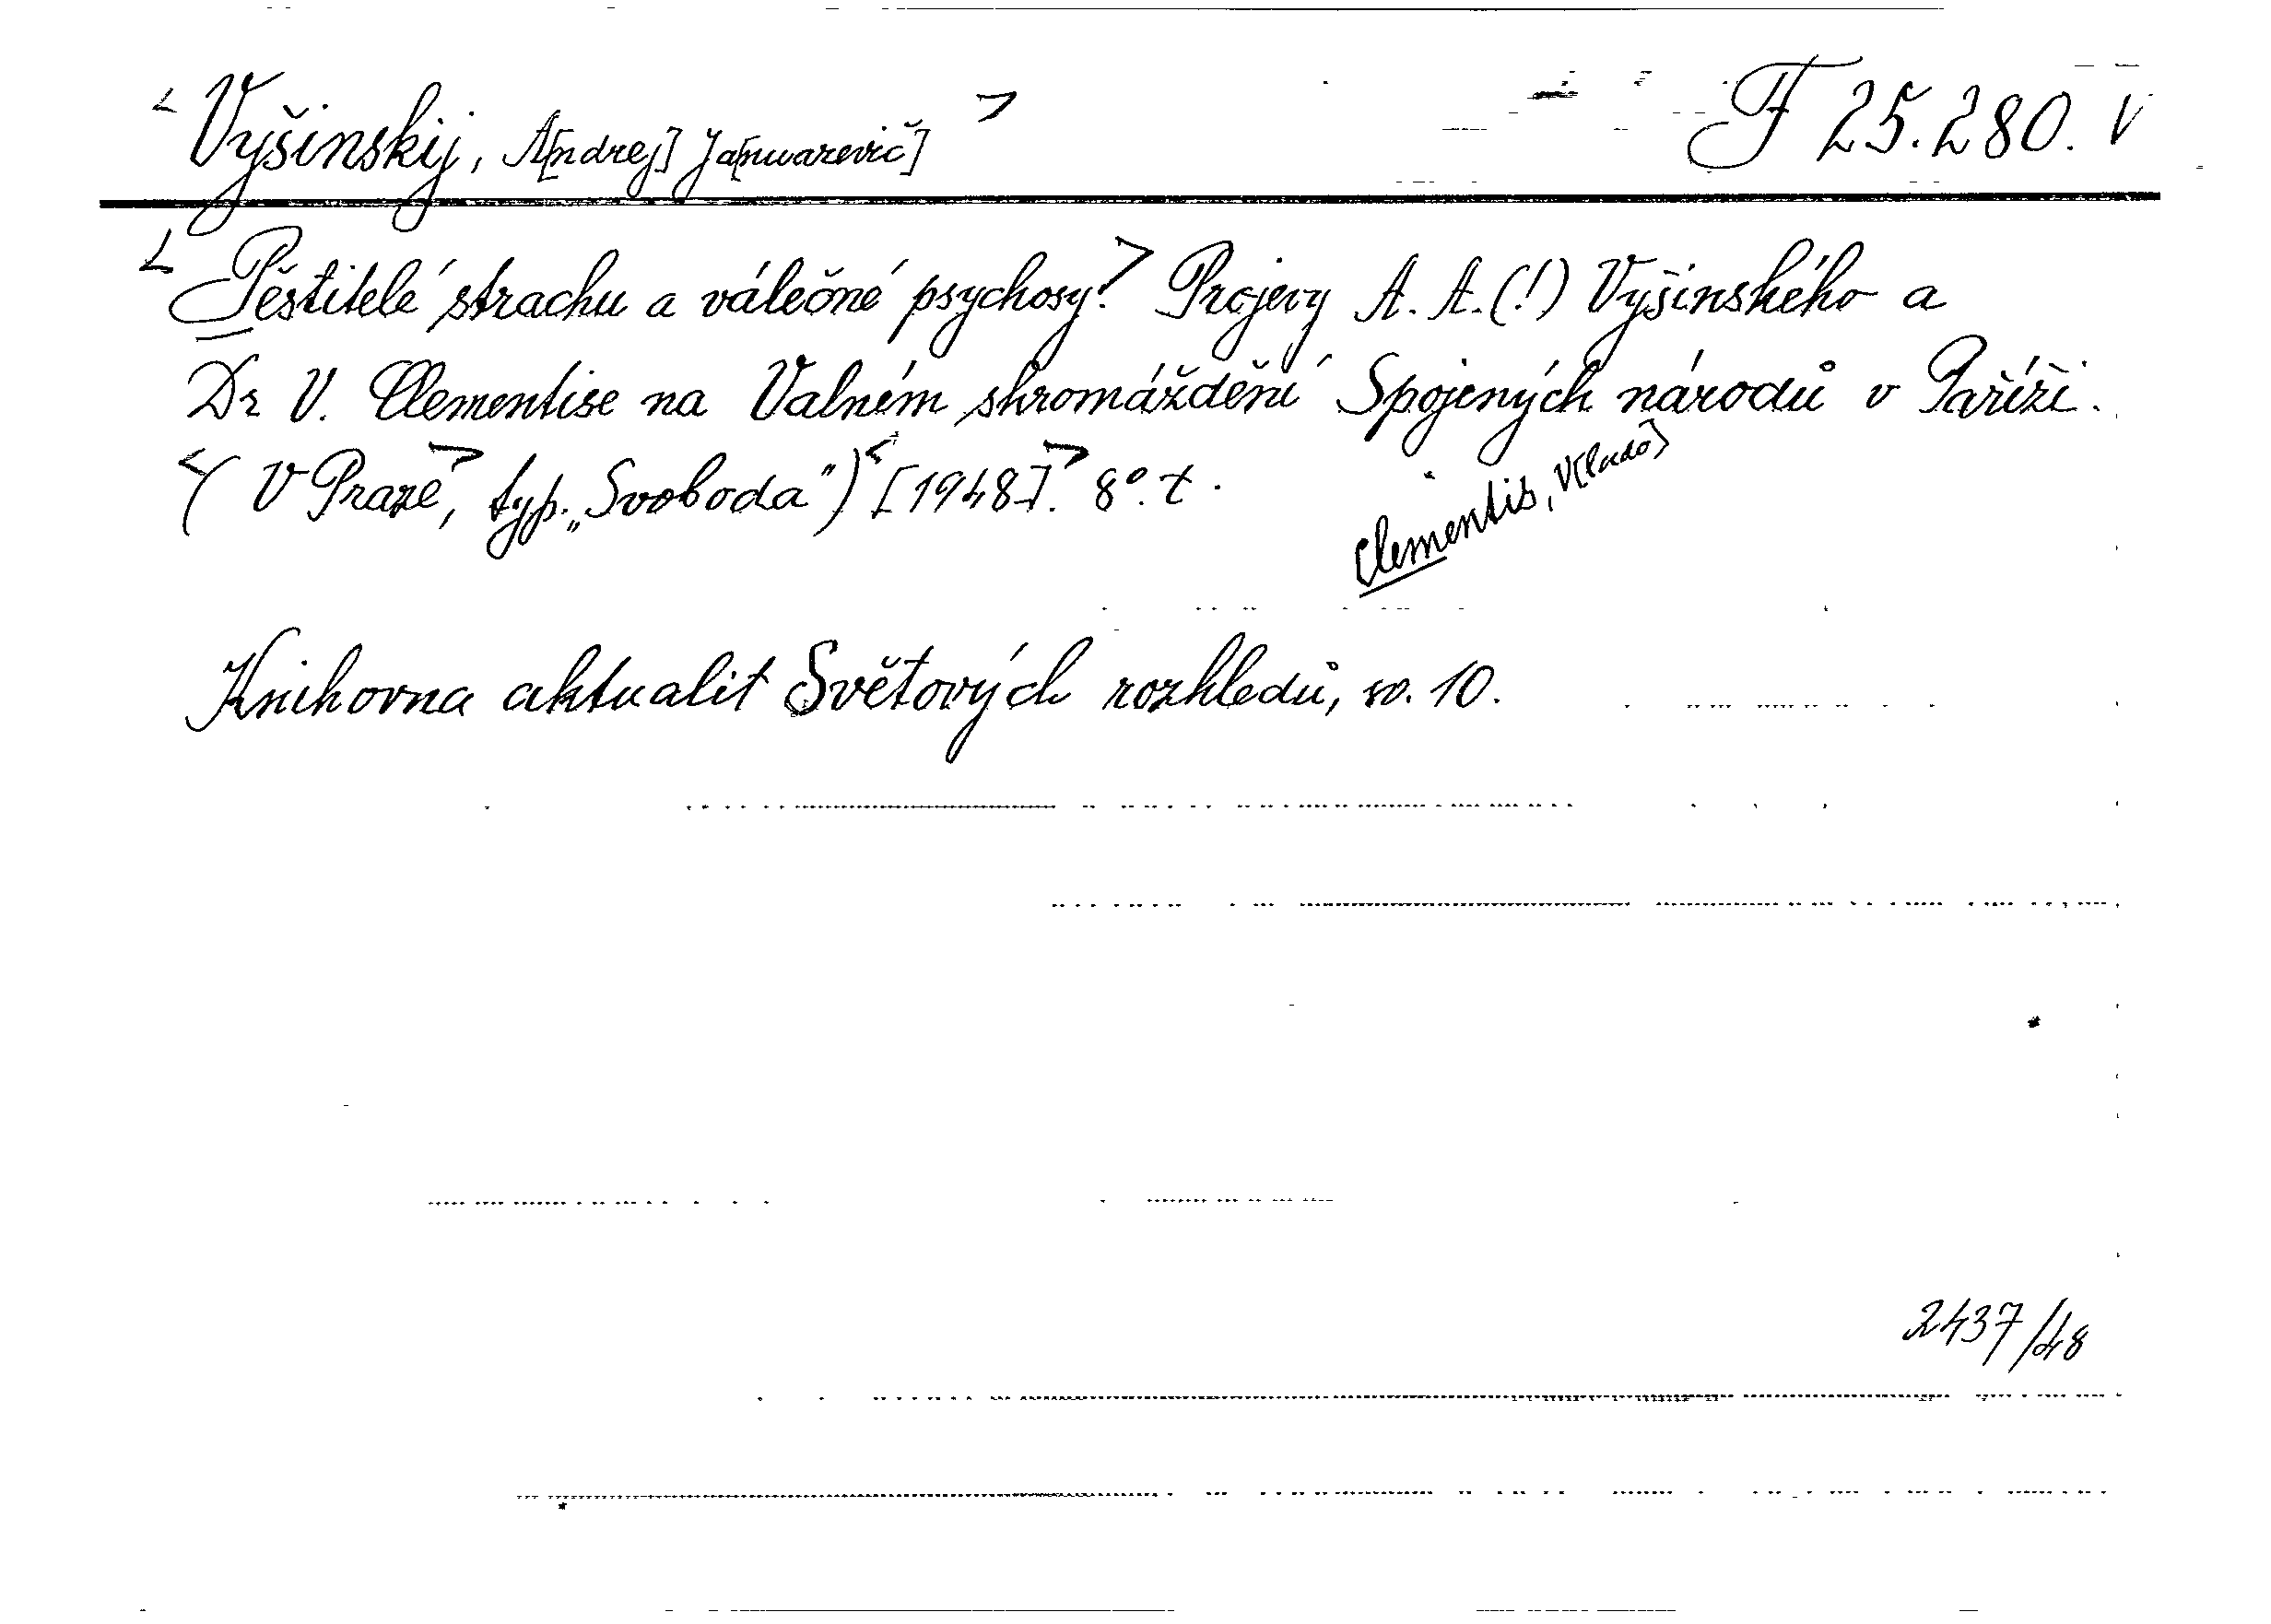 <Vyšinskij, A[ndrej] Ja[nuarevič]> F 25.280. V
<Pěstitelé strachu a válečné psychosy.> Projevy A. A. (!) Vyšinského a
Dr V. Clementise na Valném shromáždění Spojených národů v Paříži.
<(V Praze>, typ. „Svoboda") <[1948].> 8°. t.
Clementis, V[lado]
Knihovna aktualit Světových rozhledů, sv. 10.
2437/48